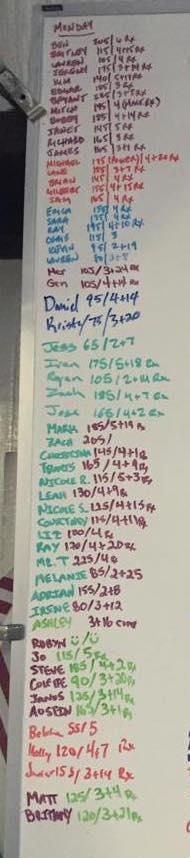 MONDAY
BEN 205/6 Rx
BRITNEY 115/4+15 Rx
LAUREN 105/4 Rx
JEREMY 175/3+14 Rx
KIM 140/5+17 Rx
EDGAR 185/3 Rx
BRYANT 285/3+7 Rx
MITCH 195/4
BOBBY 185/4+14 Rx
JANET 145/5 Rx
RICHARD 165/5 Rx
JAMES 165/3+1 Rx
MICHAEL 175 (POWER)/4+20 Rx
LANE 185/3+7 Rx
BRIAN 145/4 Rx
GILBERT 155/4+15 Rx
SAM 165/4 Rx
ERICA 135/4 Rx
SARA 135/4 Rx
RAY 195/4+10 Rx
CHRIS 115/3
KEVIN 95/2+19
LAUREN 80/3+8
Mer 105/3+24 Rx
Gen 105/4+14 Rx
Daniel 95/4+14
Kristy/75/3+20
Jess 65/2+7
Ivan 175/5+18 Rx
Ryan 105/2+14 Rx
Zach 185/4+7 Rx
Jose 165/4+2 Rx
MARK 185/5+19 Rx
ZACH 205/
CHRISTINA 145/4+1 Rx
TRAVIS 165/4+9 Rx
NICOLE R. 115/5+3 Rx
LEAH 130/4+9 Rx
NICOLE S. 125/4+15 Rx
COURTNEY 115/4+11 Rx
LIZ 100/4 Rx
RAY 120/4+20 Rx
MR. T 225/4 Rx
MELANIE 85/2+25
ADRIAN 155/2+8
IRENE 80/3+12
ASHLEY 3+16 comp
ROBYN ü/ü
Jo 115/5 Rx
STEVE 185/4+2 Rx
COLETTE 90/3+20 Rx
JANUS 125/3+14 Rx
AUSTIN 165/3+1 Rx
55/5
Holly 120/4+7 Rx
155/3+14 Rx
MATT 125/3+4 Rx
BRITTANY 120/3+21 Rx